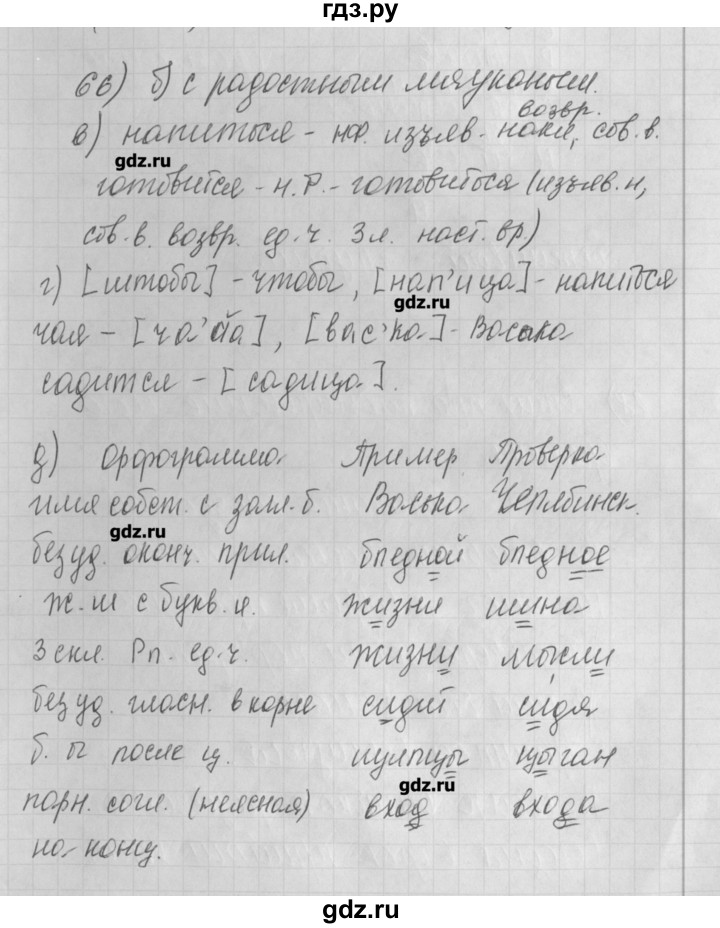 гдз.ру
66) б) с радостным мяуканьем.
возвр.
в) напиться - нф. изъяв. накл, сов. в.
gdz.ru
готовится - н.Р. - готовиться (изъяв. н,
сов. в. возвр. ед. ч. 3 л. наст. вр)
г) [штобы] - чтобы, [нап'ица] - напиться
gdz.ru
чая - [ча'йа], [вас'ка] - Васька
садится - [садица].
д) Орфограмма Пример Проверка
имя собст. с загл. б. Васька Челябинск.
gdz.ru
безуд. оконч. прил. бледной бледное
ж. ш с букв. и. жизни шина
3 скл. Рп. ед. ч. жизни мысли
безуд. гласн. в корне сидит сидя
б. ы после ц. щипцы цыган
gdz.ru
парн. согл. (неясная) вход входа
на конц.
gdz.ru